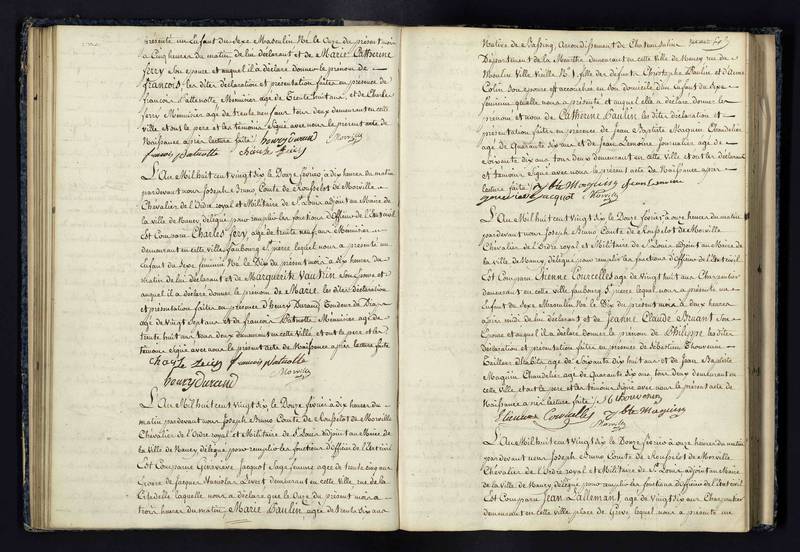 présenté un Enfant du Sexe Masculin Né le Onze du présent mois
à Cinq heures du matin de lui déclarant et de Marie Catherine
Ferry Son épouse et auquel il a déclaré donner le prénom de
François, les dites déclaration et présentation faites en présence de
françois Patenotte, Ménuisier agé de Trente huit ans, et de Charles
ferry Ménuisier agé de trente neuf ans tous deux demeurant en cette
ville et ont le pere et les témoins Signé avec nous le présent acte de
Naissance après lecture faite henry Durand Morville
L'An Mil huit cent vingt Six le Douze février à dix heures du matin
pardevant nous Joseph Bruno Comte de Rousselot de Morville
Chevalier de l'Ordre royal et Militaire de St. Louis adjoint au Maire de
la ville de Nancy, délégué pour remplir les fonctions d'Officier de l'état civil
Est Comparu Charles ferry, agé de trente neuf ans Ménuisier
demeurant en cette ville, faubourg St. pierre lequel nous a présenté un
Enfant du Sexe féminin Né le Dix du présent mois à dix heures du
matin de lui déclarant et de Marguerite Vautrin Son épouse et
auquel il a déclaré donner le prénom de Marie, les dites déclaration
et présentation faites en présence d'henry Durand Tondeur de Draps
agé de Vingt Sept ans et de françois Patenotte Ménuisier agé de
trente huit ans tous deux demeurant en cette ville et ont le pere et les
témoins Signé avec nous le présent acte de Naissance après lecture faite
françois
henry Durand Morville
L'An Mil huit cent vingt Six le Douze février à dix heures du
matin pardevant nous Joseph Bruno Comte de Rousselot de Morville
Chevalier de l'Ordre royal et Militaire de St. Louis adjoint au Maire de
la ville de Nancy délégué pour remplir les fonctions d'Officier de l'état civil
Est Comparue Genevieve Jacquot Sage femme agée de trente cinq ans
Epouse de Jacques Nicolas demeurant en cette ville, rue de la
Citadelle laquelle nous a déclaré que le Onze du présent mois à
trois heures du matin, Marie Paulin agée de Trente Six ans
Native de Bassing, Arrondissement de Chateau Salins
Département de la Meurthe demeurant en cette ville de Nancy rue du
Moulin Ville Vieille fille des defunts Christophe Paulin et d'Anne
Colin Son épouse est accouchée en Son domicile d'un Enfant du Sexe
féminin qu'elle nous a présenté et auquel elle a déclaré donner les
prénom et nom de Catherine Paulin les dites déclaration et
présentation faites en présence de Jean Baptiste Maquin Chandelier
agé de Quarante Six ans et de Jean Lemoine Journalier agé de
Soixante dix ans tous deux demeurant en cette ville et ont les déclarante
et témoins Signé avec nous le présent acte de Naissance après
lecture faite Jbte Maquin Jean Lemoine
Jacquot Morville
L'An Mil huit cent vingt Six le Douze février à onze heures du matin
pardevant nous Joseph Bruno Comte de Rousselot de Morville
Chevalier de l'Ordre royal et Militaire de St. Louis adjoint au Maire de
la ville de Nancy, délégué pour remplir les fonctions d'Officier de l'état civil
Est Comparu Etienne Courcelles agé de Vingt huit ans Charpentier
demeurant en cette ville faubourg St. pierre lequel nous a présenté un
Enfant du Sexe Masculin Né le Dix du présent mois à deux heures
après midi de lui déclarant et de Jeanne Claude Bruant Son
Epouse et auquel il a déclaré donner le prénom de Philippe les dites
déclaration et présentation faites en présence de Sébastien Thouvenin
Tailleur d'habits agé de Soixante dix huit ans et de Jean Baptiste
Maquin Chandelier agé de Quarante Six ans tous deux demeurant en
cette ville et ont le pere et les témoins Signé avec nous le présent acte de
Naissance après lecture faite
Etienne Courcelles Jbte Maquin
Morville
L'An Mil huit cent vingt Six le Douze février à onze heures du matin
pardevant nous Joseph Bruno Comte de Rousselot de Morville
Chevalier de l'Ordre royal et Militaire de St. Louis, adjoint au Maire
de la ville de Nancy, délégué pour remplir les fonctions d'Officier de l'état civil
Est Comparu Jean Lallemant agé de Vingt dix ans Charpentier
demeurant en cette ville place de Grève, lequel nous a présenté un